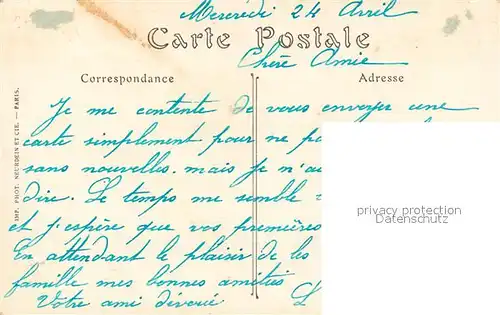 Mercredi 24 Avril
Carte Postale
Chère Amie
Correspondance
Adresse
Je me contente de vous envoyer une
carte simplement pour ne pa
sans nouvelles. mais je n'au
dire. Le temps me semble
et j'espère que vos premières
En attendant le plaisir de les
famille mes bonnes amitiés
Votre ami dévoué
L
IMP. PHOT. NEURDEIN ET CIE. — PARIS.
privacy protection
Datenschutz